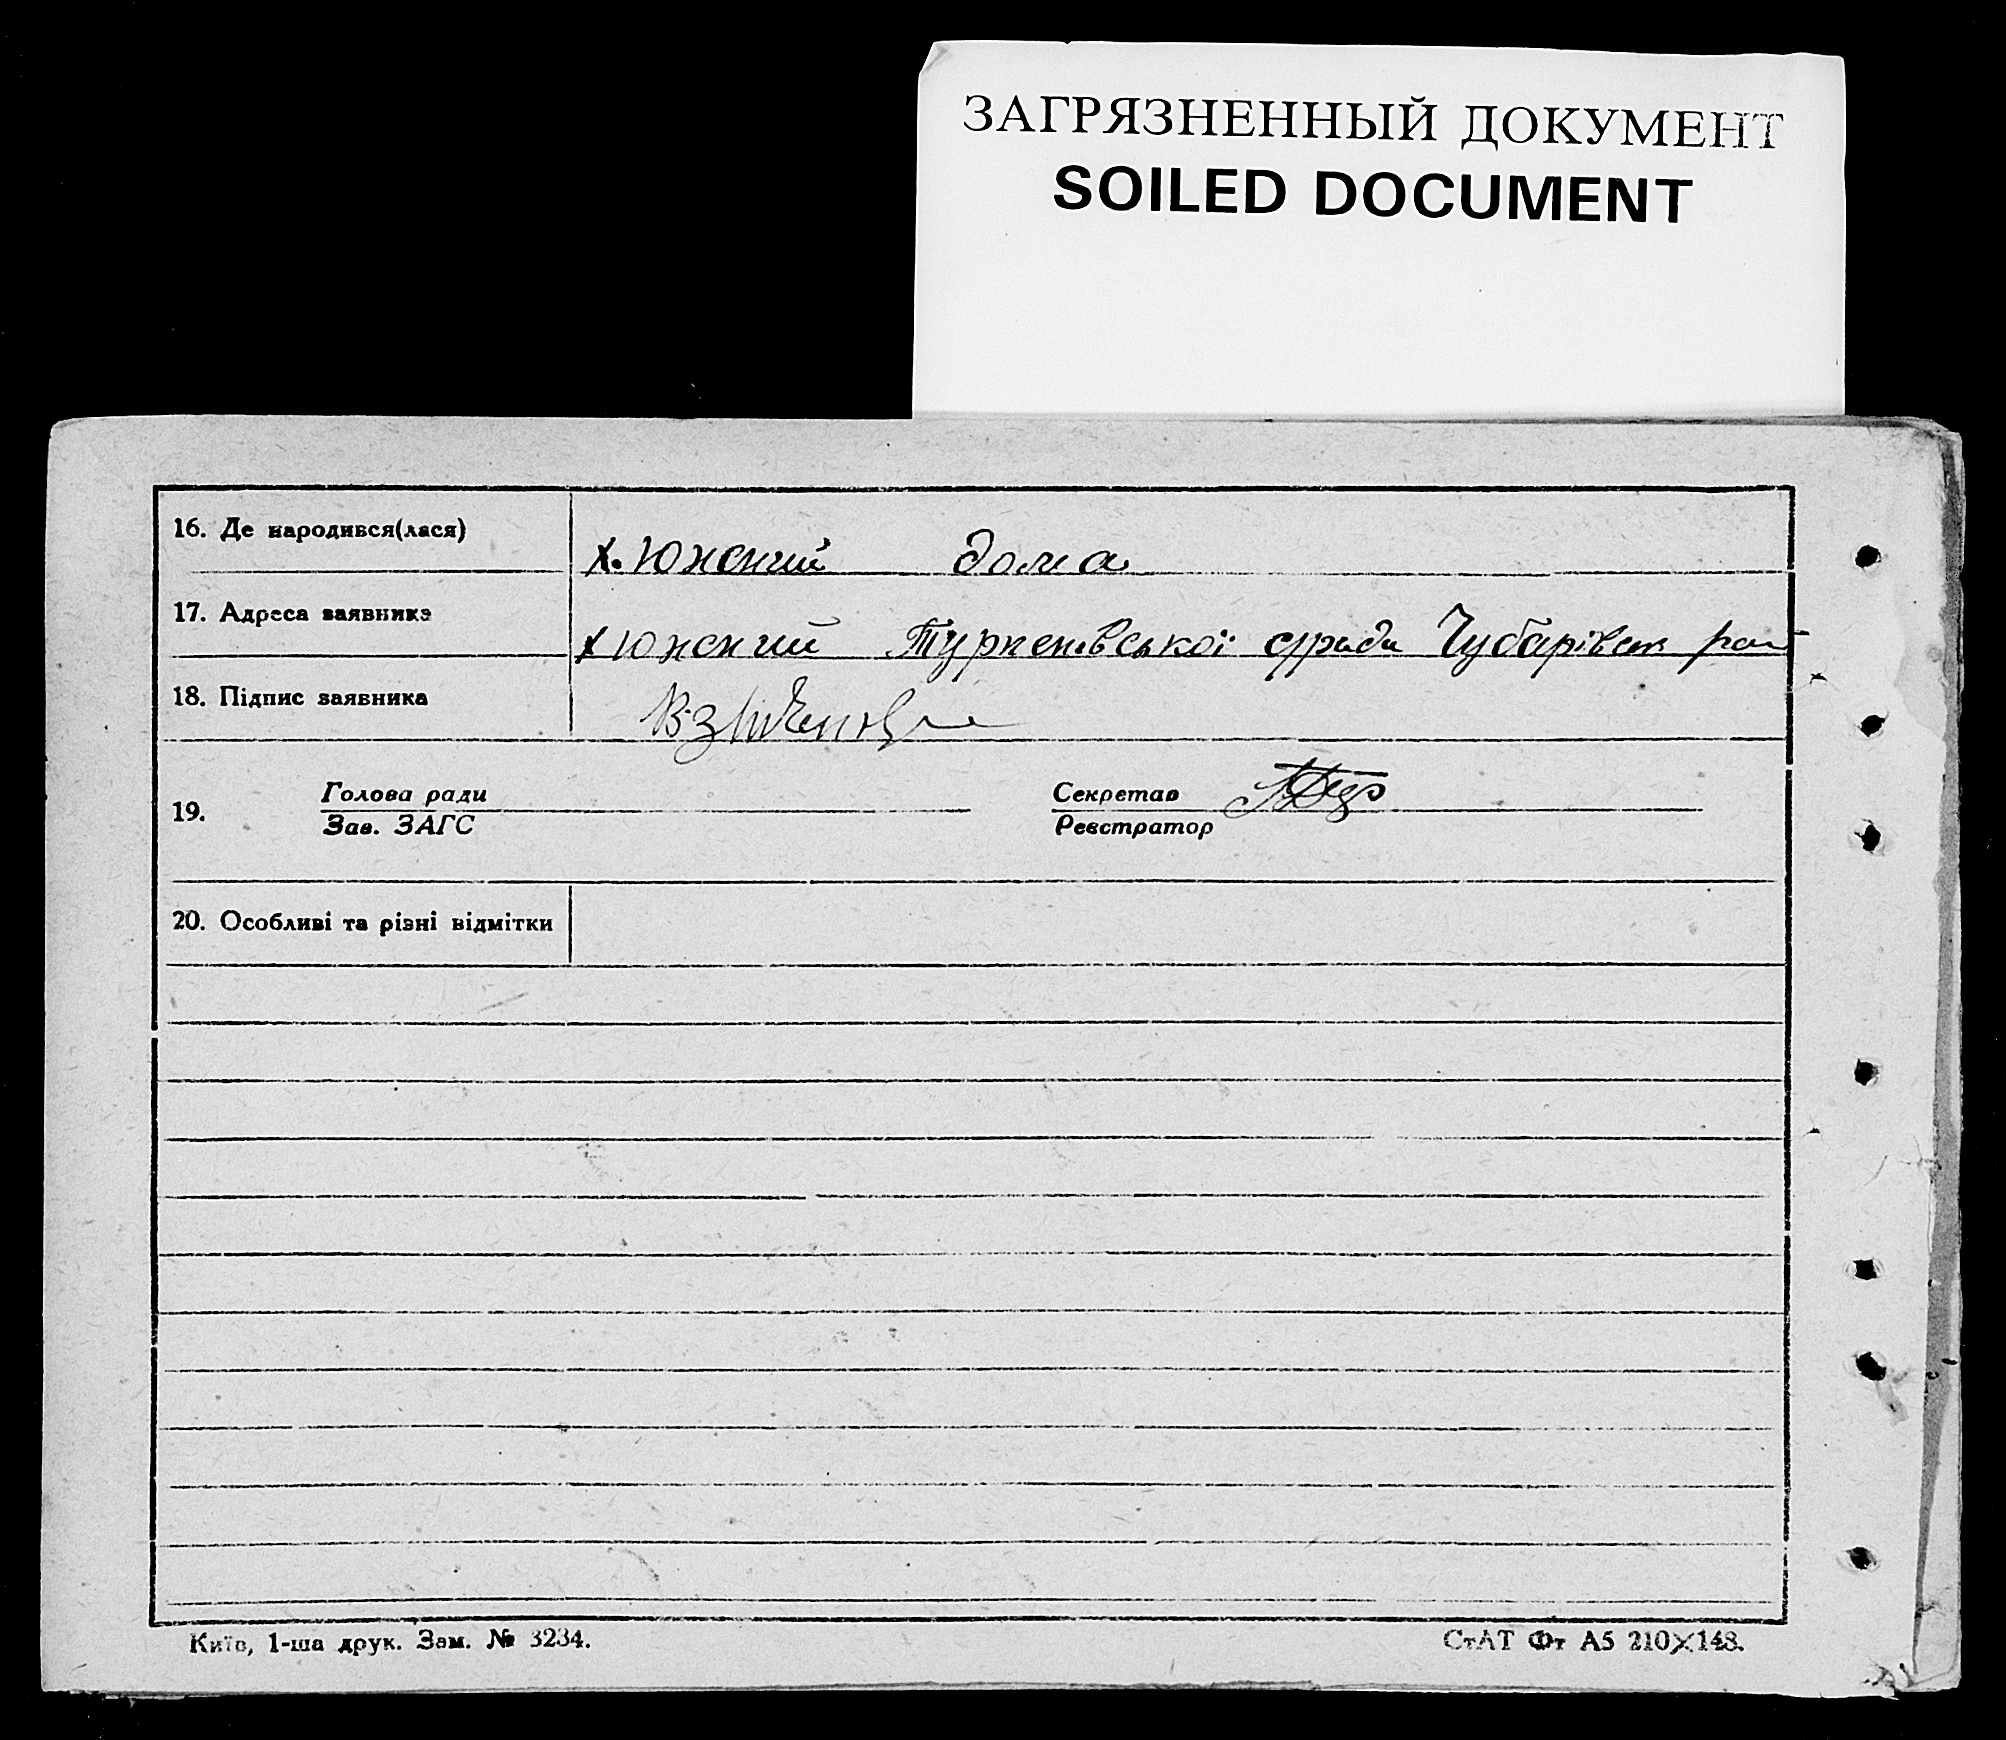 ЗАГРЯЗНЕННЫЙ ДОКУМЕНТ
SOILED DOCUMENT
16. Де народився(лася)
х. Юнский дома
17. Адреса заявника
х Юнский Тургенівської с/ради Чубарівськ рай
18. Підпис заявника
19. Голова ради
Зав. ЗАГС
Секретар
Реєстратор
20. Особливі та різні відмітки
Київ, 1-ша друк. Зам. № 3234.
СтАТ Фт А5 210×148.